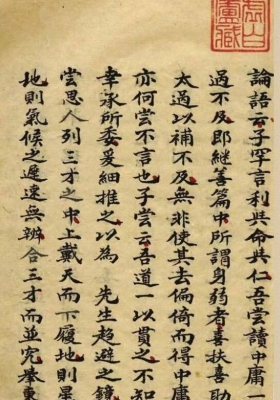 論語云子罕言利共命共仁吾嘗讀中庸一
過不及即継善篇中所謂身弱者喜扶喜助
太過以補不及無非使其去偏倚而得中庸
亦何嘗不言也子嘗云吾道一以貫之不知
幸承所委爰細推之以為 先生趨避之鏡
嘗思人列三才之中上戴天而下履地則
地則氣候之遲速無辨合三才而並究舉東
虛白廬藏